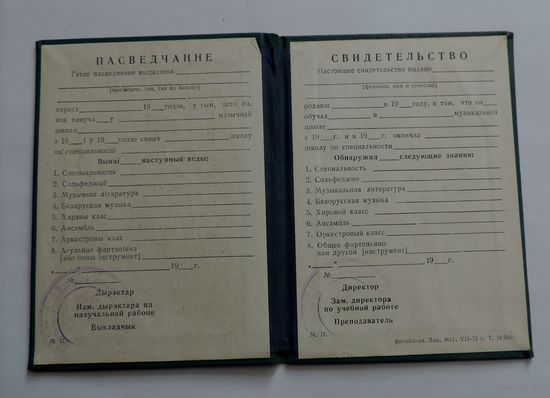 ПАСВЕДЧАННЕ
Гэтае пасведчанне выдадзена
[прозвішча, імя, імя па бацьку]
19 годзе, у тым, што ён,
яна навуча у музычнай
школе
з 19 г і ў 19 годзе скончы школу
па спецыяльнасці
Выяві наступныя веды:
1. Спецыяльнасць
2. Сальфеджыё
3. Музычная літаратура
4. Беларуская музыка
5. Харавы клас
6. Ансамбль
7. Аркестровы клас
8. Агульнае фартэпіяна
[або іншы інструмент]
19 г.
№
Дырэктар
Нам. дырэктара па
навучальнай рабоце
Выкладчык
М. П.
СВИДЕТЕЛЬСТВО
Настоящее свидетельство выдано
[фамилия, имя и отчество]
родивш в 19 году, в том, что он
обучал в музыкальной
школе
с 19 г. и в 19 г. окончи
школу по специальности
Обнаружил следующие знания:
1. Специальность
2. Сольфеджио
3. Музыкальная литература
4. Белорусская музыка
5. Хоровой класс
6. Ансамбль
7. Оркестровый класс
8. Общее фортепьяно
или другой [инструмент]
19 г.
№
Директор
Зам. директора
по учебной работе
Преподаватель
М. П.
Зак. 4011. VII-73 г. Т. 16 000